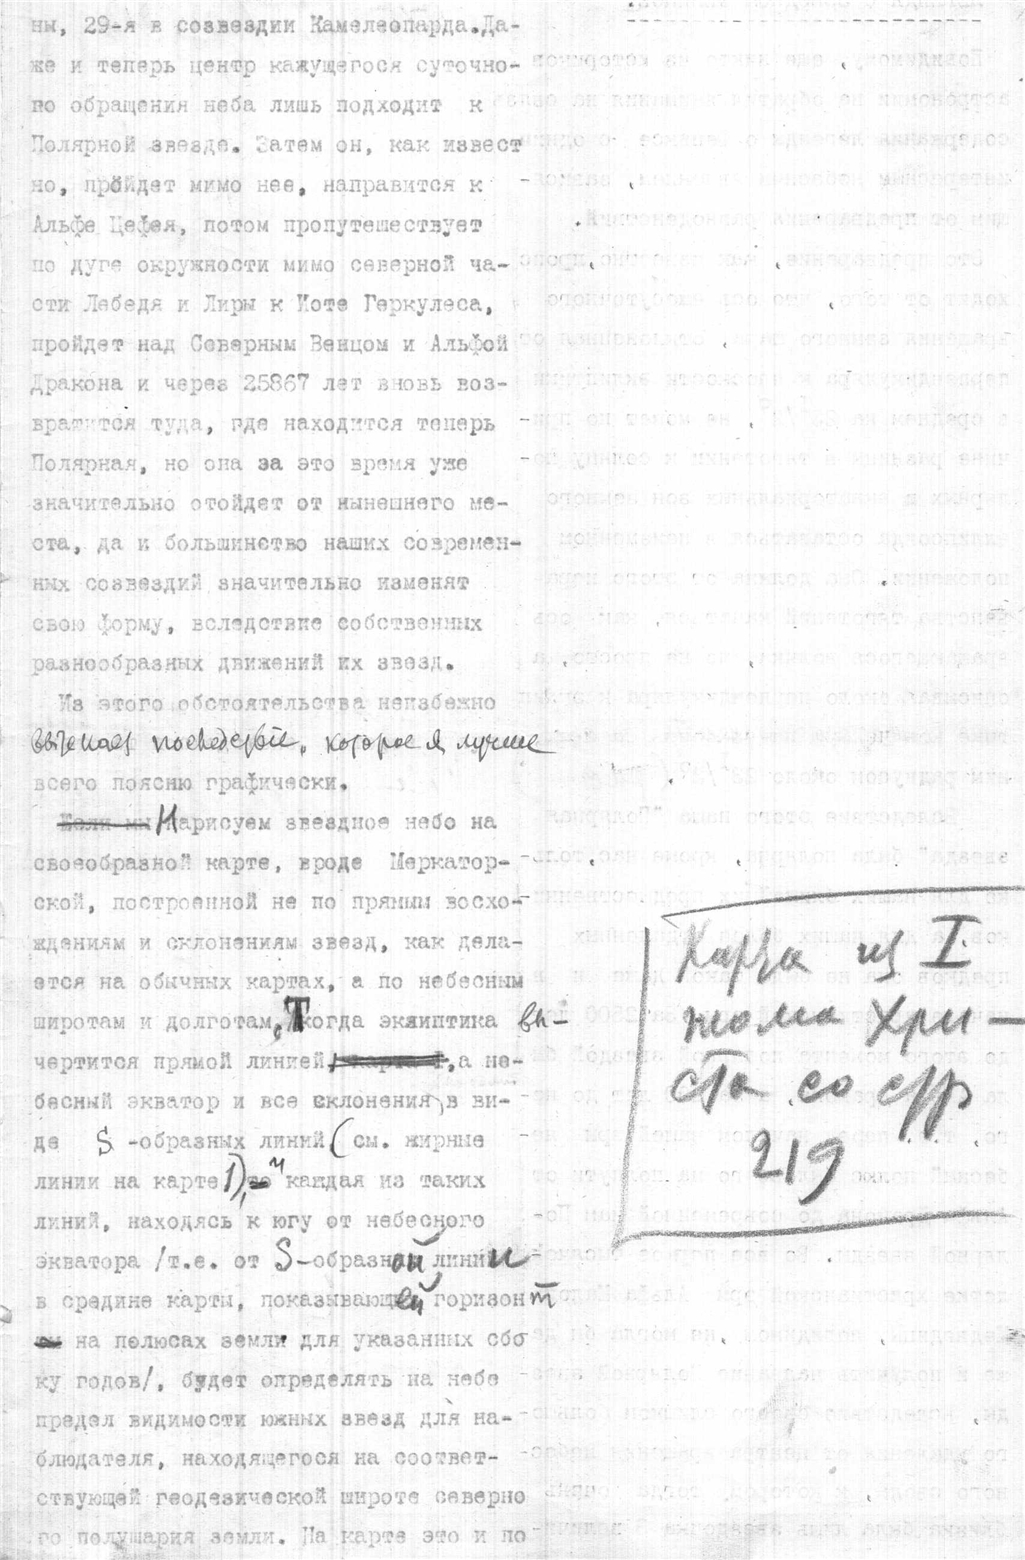 ны, 29-я в созвездии Камелеопарда.Да-
же и теперь центр кажущегося суточно-
го обращения неба лишь подходит к
Полярной звезде. Затем он, как извест
но, пройдет мимо нее, направится к
Альфе Цефея, потом пропутешествует
по дуге окружности мимо северной ча-
сти Лебедя и Лиры к Иоте Геркулеса,
пройдет над Северным Венцом и Альфой
Дракона и через 25867 лет вновь воз-
вратится туда, где находится теперь
Полярная, но она за это время уже
значительно отойдет от нынешнего ме-
ста, да и большинство наших современ-
ных созвездий значительно изменят
свою форму, вследствие собственных
разнообразных движений их звезд.
Из этого обстоятельства неизбежно
вытекает последствие, которое я лучше
всего поясню графически.
Если мы Нарисуем звездное небо на
своеобразной карте, вроде Меркатор-
ской, построенной не по прямым восхо-
ждениям и склонениям звезд, как дела-
ется на обычных картах, а по небесным
широтам и долготам, Тогда эклиптика вы-
чертится прямой линией, а не-
бесный экватор и все склонения, в ви-
де S -образных линий (см. жирные
линии на карте I), и каждая из таких
линий, находясь к югу от небесного
экватора /т.е. от S-образной линии
в средине карты, показывающей горизонт
на полюсах земли для указанных сбо
ку годов/, будет определять на небе
предел видимости южных звезд для на-
блюдателя, находящегося на соответ-
ствующей геодезической широте северно
го полушария земли. На карте это и по
Карта из I.
тома Хри-
ста со стр
219